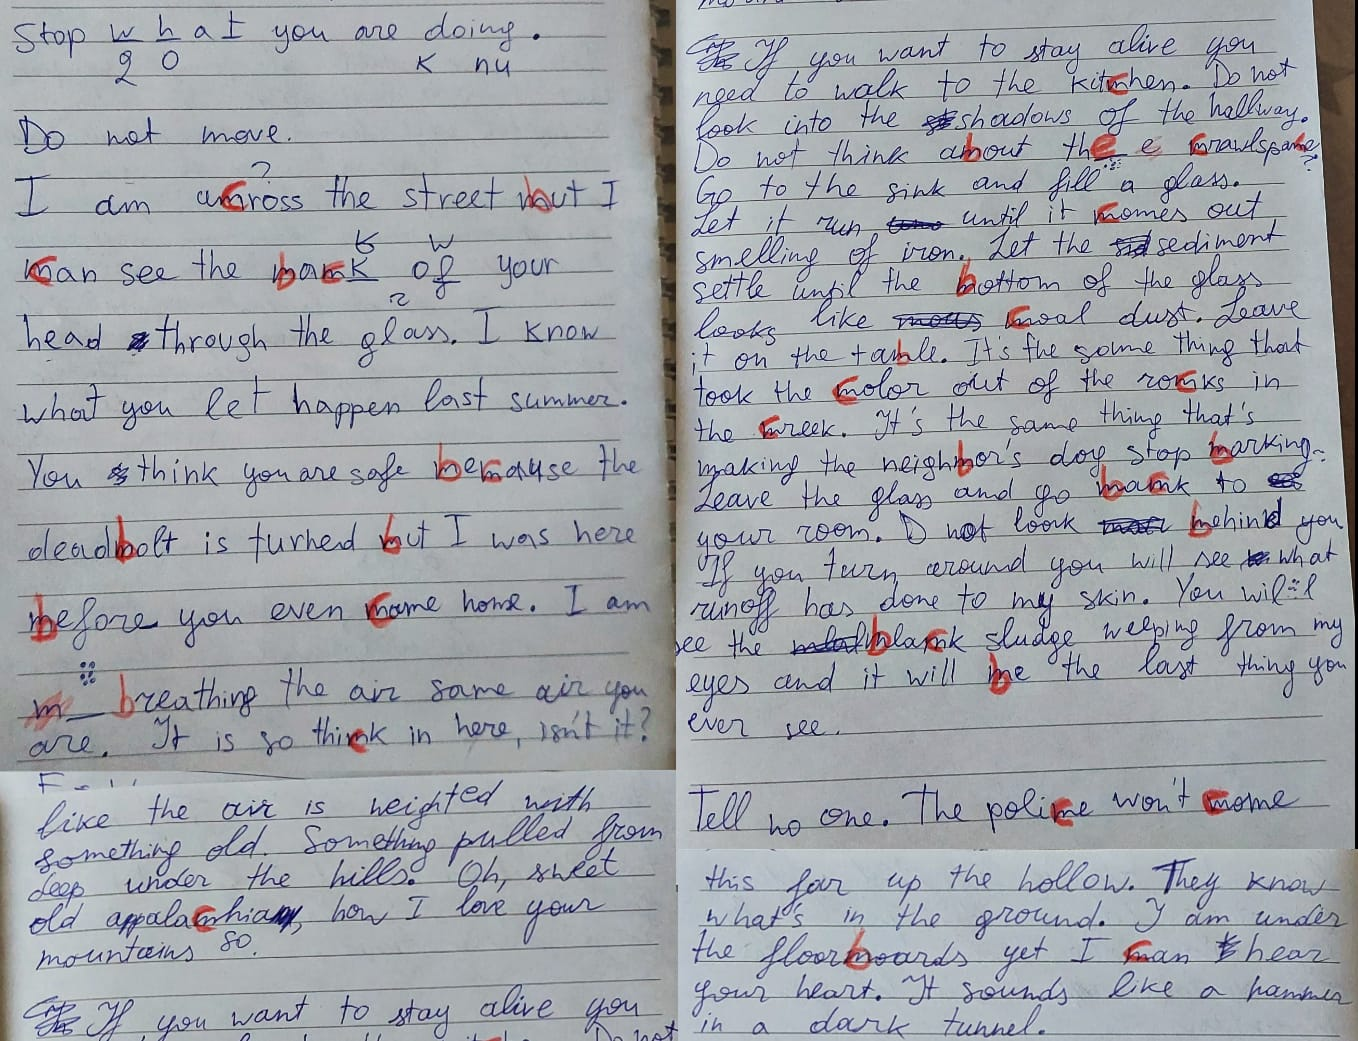 Stop what you are doing.
2 0 K nu
Do not move.
?
I am across the street but I
б w
can see the back of your
2
head through the glass. I know
what you let happen last summer.
You think you are safe because the
deadbolt is turned but I was here
before you even came home. I am
breathing the air same air you
are. It is so thick in here, isn't it?
like the air is weighted with
something old. Something pulled from
deep under the hills. Oh, sweet
old appalachian, how I love your
mountains so.
If you want to stay alive you
If you want to stay alive you
need to walk to the kitchen. Do not
look into the shadows of the hallway.
Do not think about the e crawlspace?
Go to the sink and fill a glass.
Let it run until it comes out
smelling of iron. Let the sediment
settle until the bottom of the glass
looks like coal dust. Leave
it on the table. It's the same thing that
took the color out of the rocks in
the creek. It's the same thing that's
making the neighbor's dog stop barking.
Leave the glass and go back to
your room. D not look behind you
If you turn around you will see what
runoff has done to my skin. You will
see the black sludge weeping from my
eyes and it will be the last thing you
ever see.
Tell no one. The police won't come
this far up the hollow. They know
what's in the ground. I am under
the floorboards yet I can hear
your heart. It sounds like a hammer
in a dark tunnel.